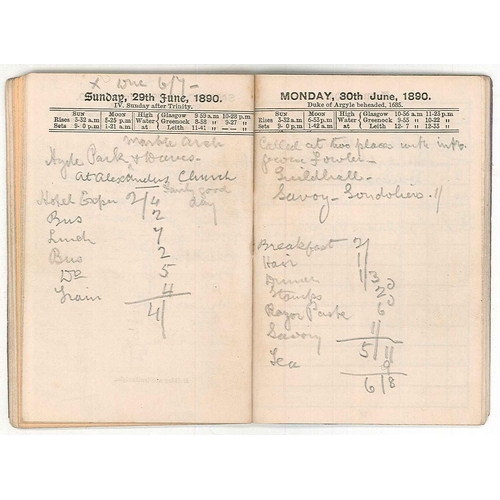 "X" one 6/7 -
Sunday, 29th June, 1890.
IV. Sunday after Trinity.
Sun Moon High Glasgow 9-59 a.m 10-22 p.m
Rises 3-32 a.m 5-25 p.m Water Greenock 8-58 " 9-27 "
Sets 9- 0 p.m 1-21 a.m at Leith 11-41 " — —
Marble Arch
Hyde Park &
At Alexanders Church
Fairly good
day
Hotel Expn 2/4
Bus 2
Lunch 7
Bus 2
Do 5
Train 4
4/
MONDAY, 30th June, 1890.
Duke of Argyle beheaded, 1685.
Sun Moon High Glasgow 10-56 a.m 11-23 p.m
Rises 3-32 a.m 6-53 p.m Water Greenock 9-55 " 10-22 "
Sets 9- 0 p.m 2- 8 a.m at Leith 12- 7 " 12-33 "
Called at two places with
given Fowler -
Guildhall -
Savoy - Gondoliers - 1/
Breakfast 2/
Hair 1/
Dinner 1/3
Stamps 2
Razor Paste 6
Savoy 1/
5/11
Tea 9
6/8